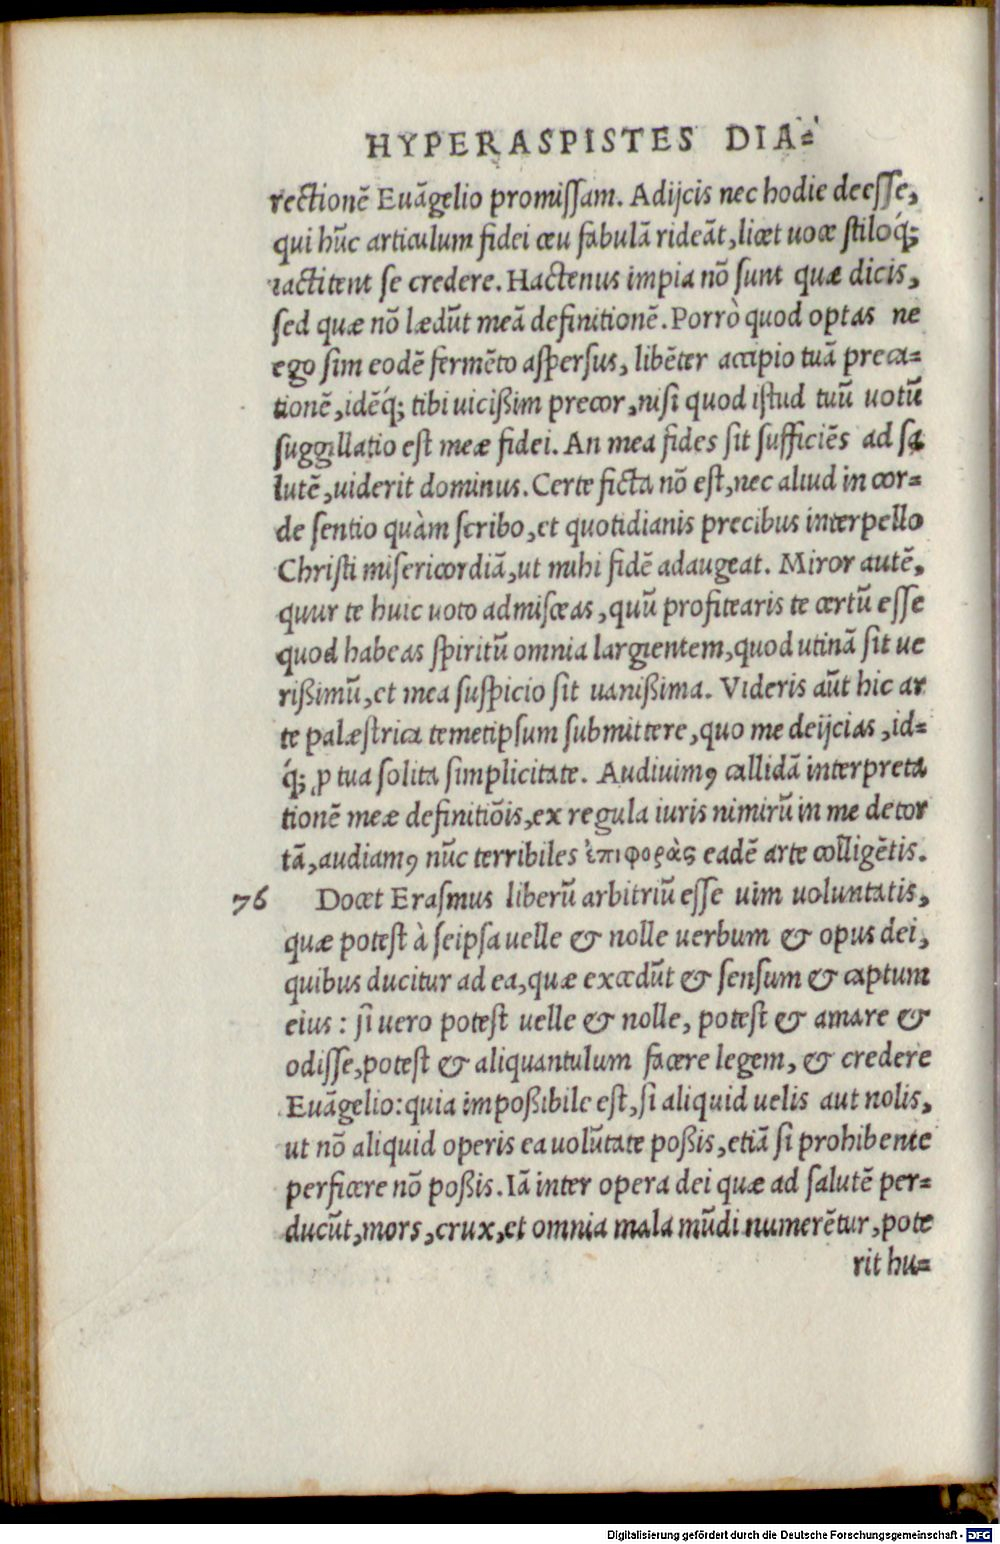 HYPERASPISTES DIA⸗
rectionē Euāgelio promiſſam. Adijcis nec hodie deeſſe,
qui hūc articulum fidei ceu fabulā rideāt, licet uoce ſtiloq́;
iactitent ſe credere. Hactenus impia nō ſunt quæ dicis,
ſed quæ nō lædūt meā definitionē. Porrò quod optas ne
ego ſim eodē fermēto aſperſus, libēter accipio tuā preca⸗
tionē, idēq́; tibi uicißim precor, niſi quod iſtud tuū uotū
ſuggillatio eſt meæ fidei. An mea fides ſit ſufficiēs ad ſa
lutē, uiderit dominus. Certe ficta nō eſt, nec aliud in cor⸗
de ſentio quàm ſcribo, et quotidianis precibus interpello
Chriſti miſericordiā, ut mihi fidē adaugeat. Miror autē,
quur te huic uoto admiſceas, quū profitearis te certū eſſe
quod habeas ſpiritū omnia largientem, quod utinā ſit ue
rißimū, et mea ſuſpicio ſit uanißima. Videris aūt hic ar
te palæſtrica temetipſum ſubmittere, quo me deijcias, id⸗
q́; ꝓ tua ſolita ſimplicitate. Audiuimꝰ callidā interpreta
tionē meæ definitiōis, ex regula iuris nimirū in me detor
tā, audiamꝰ nūc terribiles ἐπιφορὰς eadē arte colligētis.
76 Docet Eraſmus liberū arbitriū eſſe uim uoluntatis,
quæ poteſt à ſeipſa uelle & nolle uerbum & opus dei,
quibus ducitur ad ea, quæ excedūt & ſenſum & captum
eius: ſi uero poteſt uelle & nolle, poteſt & amare &
odiſſe, poteſt & aliquantulum facere legem, & credere
Euāgelio: quia impoßibile eſt, ſi aliquid uelis aut nolis,
ut nō aliquid operis ea uolūtate poßis, etiā ſi prohibente
perficere nō poßis. Iā inter opera dei quæ ad ſalutē per⸗
ducūt, mors, crux, et omnia mala mūdi numerētur, pote
rit hu⸗
Digitalisierung gefördert durch die Deutsche Forschungsgemeinschaft - DFG